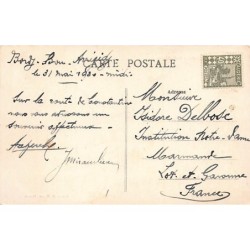 CARTE POSTALE
Bordj-Bou-
le 31 mai 1930 - midi
Sur la route de Constantine
nous vous adressons un
souvenir affectueux
ADRESSE
Monsieur
Isidore Delbosc
Institution Notre-Dame
Marmande
Lot et Garonne
France